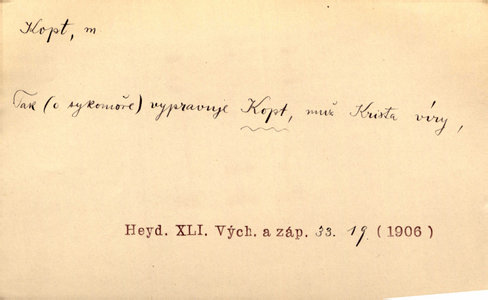 Kopt, m
Tak (o sykomoře) vypravuje Kopt, muž Krista víry,
Heyd. XLI. Vých. a záp. 33. 19. (1906)